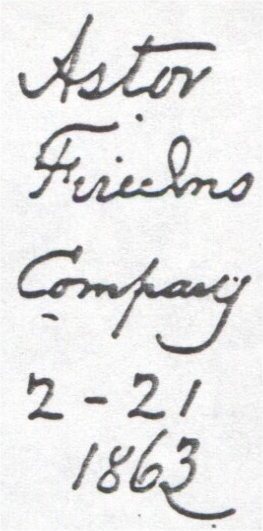 Astor
Fire Ins
Company
2-21
1863